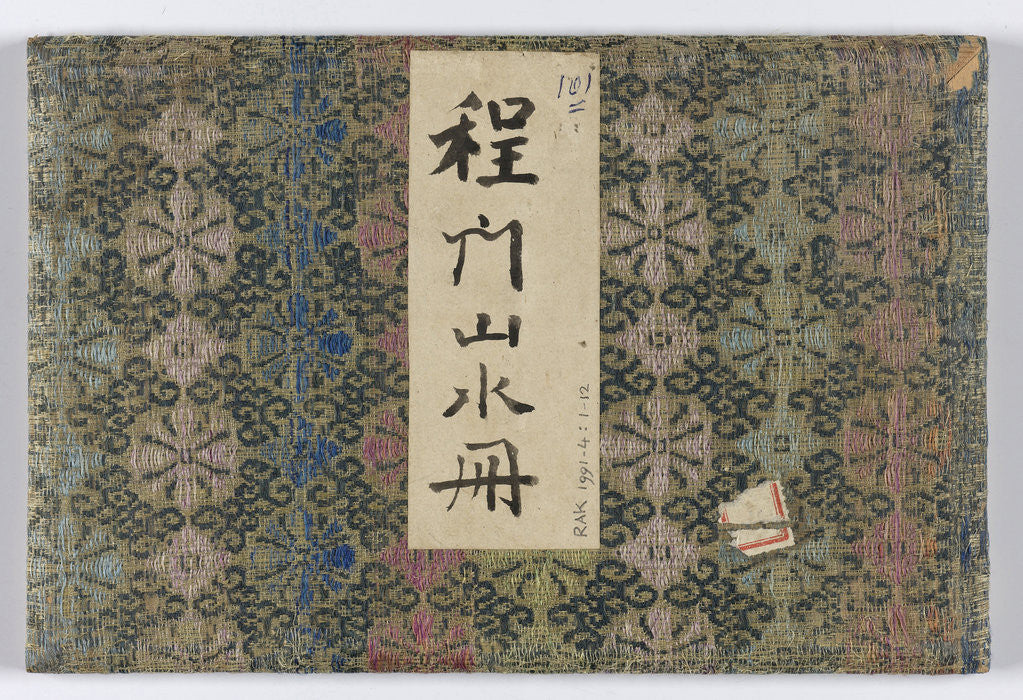 程门山水冊
101
RAK 1991-4:1-12